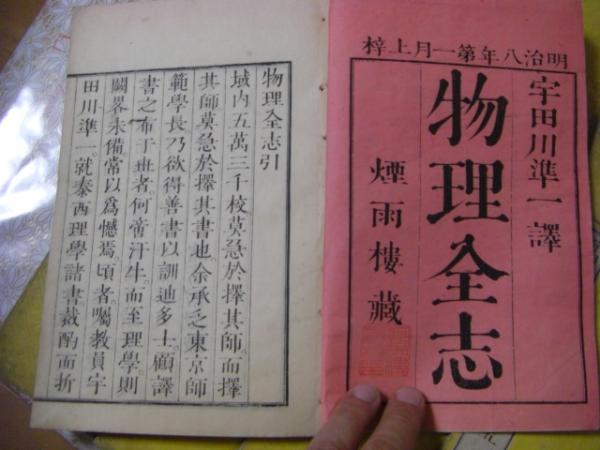 明治八年第一月上梓
宇田川準一譯
物理全志
煙雨樓藏
物理全志引
域内五萬三千校莫急於擇其師而擇
其師莫急於擇其書也余承乏東京師
範學長乃欲得善書以訓迪多士顧譯
書之布于世者何啻汗牛而至理學則
闕畧未備常以為憾焉頃者囑教員宇
田川準一就泰西理學諸書裁酌而折